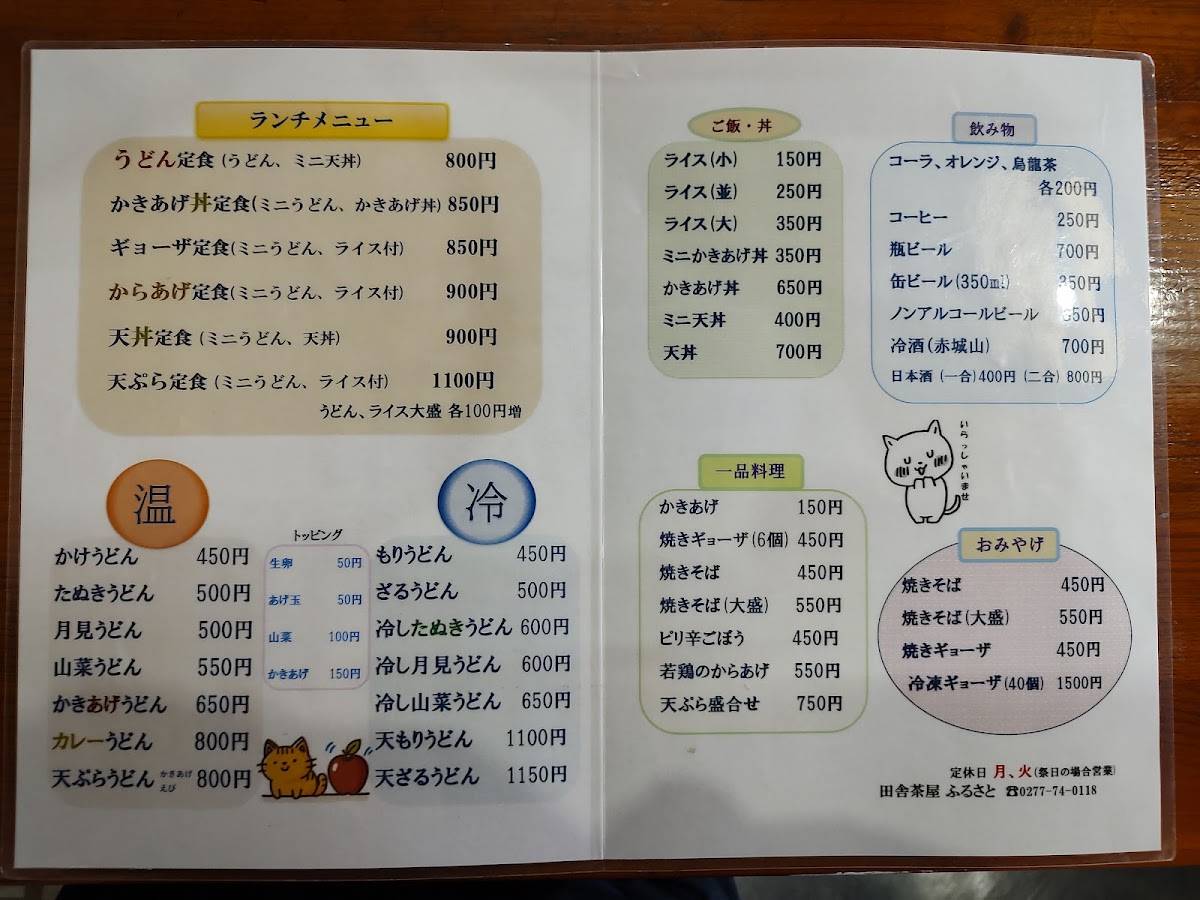 ランチメニュー
うどん定食(うどん、ミニ天丼) 800円
かきあげ丼定食(ミニうどん、かきあげ丼) 850円
ギョーザ定食(ミニうどん、ライス付) 850円
からあげ定食(ミニうどん、ライス付) 900円
天丼定食(ミニうどん、天丼) 900円
天ぷら定食(ミニうどん、ライス付) 1100円
うどん、ライス大盛 各100円増
温
かけうどん 450円
たぬきうどん 500円
月見うどん 500円
山菜うどん 550円
かきあげうどん 650円
カレーうどん 800円
天ぷらうどん かきあげ えび 800円
トッピング
生卵 50円
あげ玉 50円
山菜 100円
かきあげ 150円
冷
もりうどん 450円
ざるうどん 500円
冷したぬきうどん 600円
冷し月見うどん 600円
冷し山菜うどん 650円
天もりうどん 1100円
天ざるうどん 1150円
ご飯・丼
ライス(小) 150円
ライス(並) 250円
ライス(大) 350円
ミニかきあげ丼 350円
かきあげ丼 650円
ミニ天丼 400円
天丼 700円
一品料理
かきあげ 150円
焼きギョーザ(6個) 450円
焼きそば 450円
焼きそば(大盛) 550円
ピリ辛ごぼう 450円
若鶏のからあげ 550円
天ぷら盛合せ 750円
飲み物
コーラ、オレンジ、烏龍茶
各200円
コーヒー 250円
瓶ビール 700円
缶ビール(350ml) 350円
ノンアルコールビール 350円
冷酒(赤城山) 700円
日本酒 (一合)400円 (二合) 800円
いらっしゃいませ
おみやげ
焼きそば 450円
焼きそば(大盛) 550円
焼きギョーザ 450円
冷凍ギョーザ(40個) 1500円
定休日 月、火(祭日の場合営業)
田舎茶屋 ふるさと ☎0277-74-0118